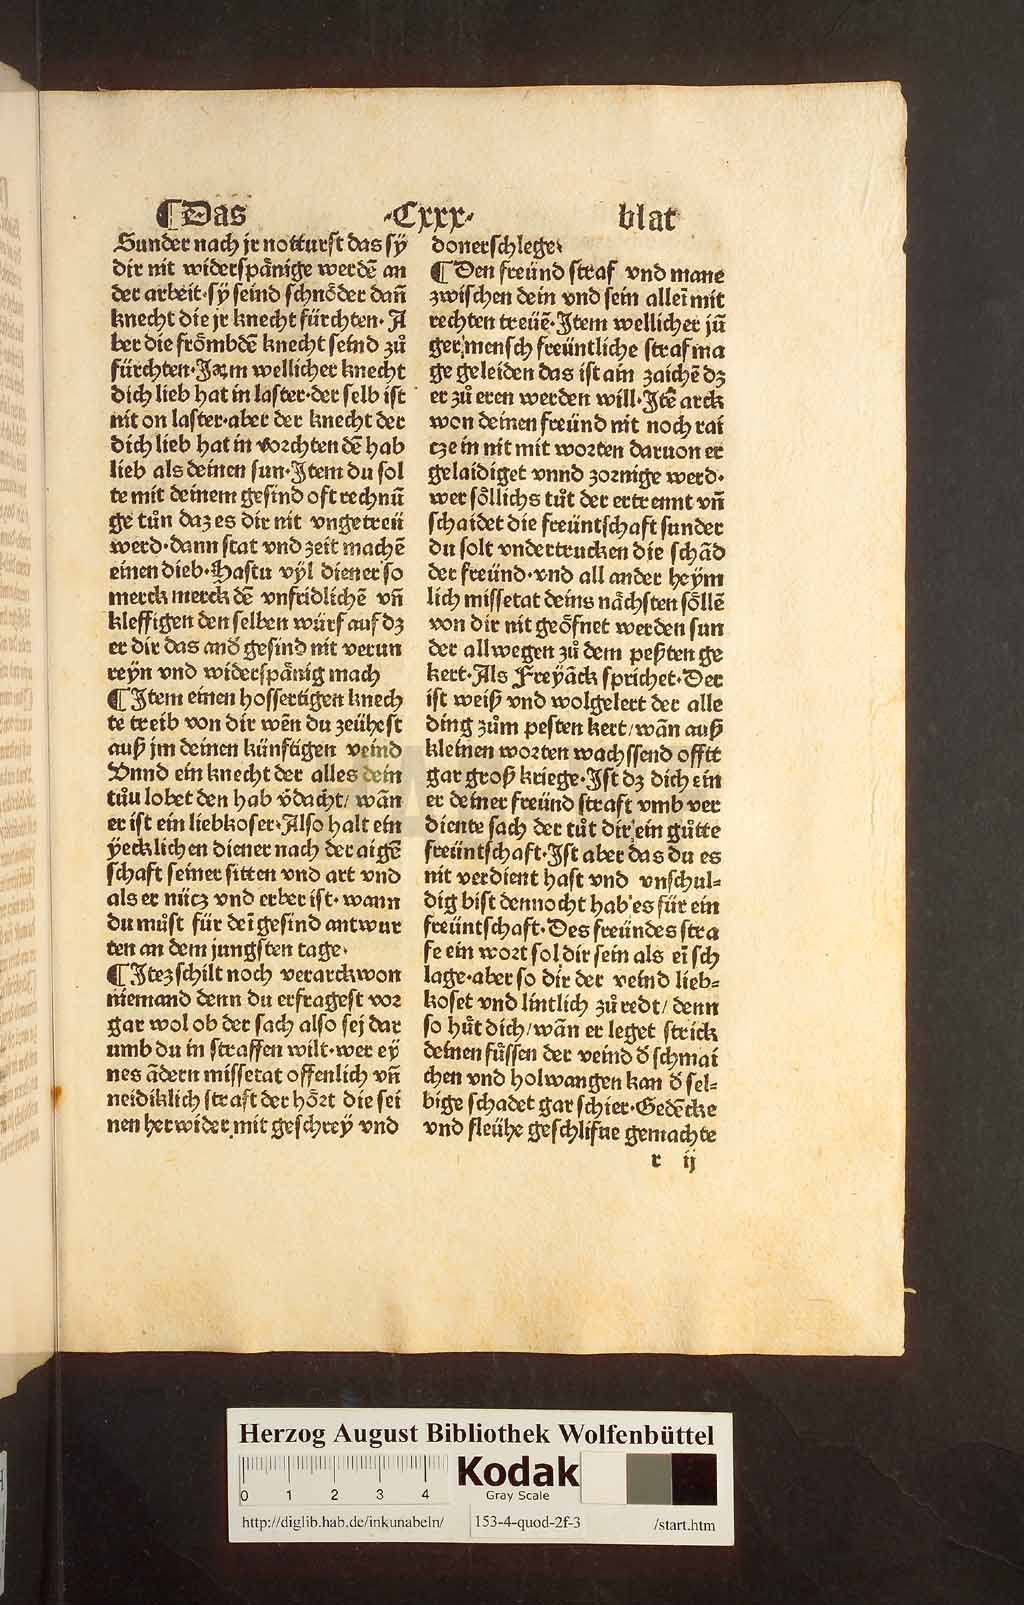 ¶Das ·Cxxx· blat
Sunder nach jr notturft das sÿ
dir nit widerspånige werdē an
der arbeit·sÿ seind schnöder dañ
knecht die jr knecht fürchten· A
ber die frömbdē knecht seind zů
fürchten·Itēm wellicher knecht
dich lieb hat in laster·der selb ist
nit on laster·aber der knecht der
dich lieb hat in vorchten dē hab
lieb als deinen sun·Item du sol
te mit deinem gesind oft rechnū
ge tůn daz es dir nit vngetreü
werd·dann stat vnd zeit machē
einen dieb·Hastu vÿl diener so
merck merck dē vnfridlichē vñ
kleffigen den selben würf auf dz
er dir das and̄ gesind nit verun
reÿn vnd widerspånig mach
¶Item einen hoffertigen knech
te treib von dir wēn du zeühest
auß jm deinen künftigen veind
Vnnd ein knecht der alles dein
tůu lobet den hab v̄dacht/ wān
er ist ein liebkoser·Also halt ein
ÿecklichen diener nach der aigē
schaft seiner sitten vnd art vnd
als er nücz vnd erber ist· wann
du můst für deī gesind antwur
ten an dem jungsten tage·
¶Itez schilt noch verarckwon
niemand denn du erfragest vor
gar wol ob der sach also sej dar
umb du in straffen wilt·wer eÿ
nes ādern missetat offenlich vñ
neidiklich straft der hört die sei
nen herwider mit geschreÿ vnd
donerschlege·
¶Den freünd straf vnd mane
zwischen dein vnd sein alleī mit
rechten treüē·Item wellicher jū
ger mensch freüntliche straf ma
ge geleiden das ist ain zaichē dz
er zů eren werden will·Itē arck
won deinen freünd nit noch rai
cze in nit mit worten daruon er
gelaidiget vnnd zornige werd·
wer söllichs tůt der ertrennt vñ
schaidet die freüntschaft sunder
du solt vndertrucken die schād
der freünd·vnd all ander heÿm
lich missetat deins nächsten söllē
von dir nit geöfnet werden sun
der allwegen zů dem peßten ge
kert·Als Freÿāck sprichet·Der
ist weiß vnd wolgelert der alle
ding zům pesten kert/wān auß
kleinen worten wachssend offtt
gar groß kriege·Ist dz dich ein
er deiner freünd straft vmb ver
diente sach der tůt dir ein gůtte
freüntschaft·Ist aber das du es
nit verdient hast vnd vnschul⸗
dig bist dennocht hab es für ein
freüntschaft·Des freündes stra
fe ein wort sol dir sein als eī sch
lage·aber so dir der veind lieb⸗
koset vnd lintlich zů redt/ denn
so hůt dich/wān er leget strick
deinen fůssen der veind d̄ schmai
chen vnd holwangen kan d̄ sel⸗
bige schadet gar schier·Gedēcke
vnd fleühe geschlifne gemachte
r ij
Herzog August Bibliothek Wolfenbüttel
0 1 2 3 4
Kodak
Gray Scale
http://diglib.hab.de/inkunabeln/ 153-4-quod-2f-3 /start.htm